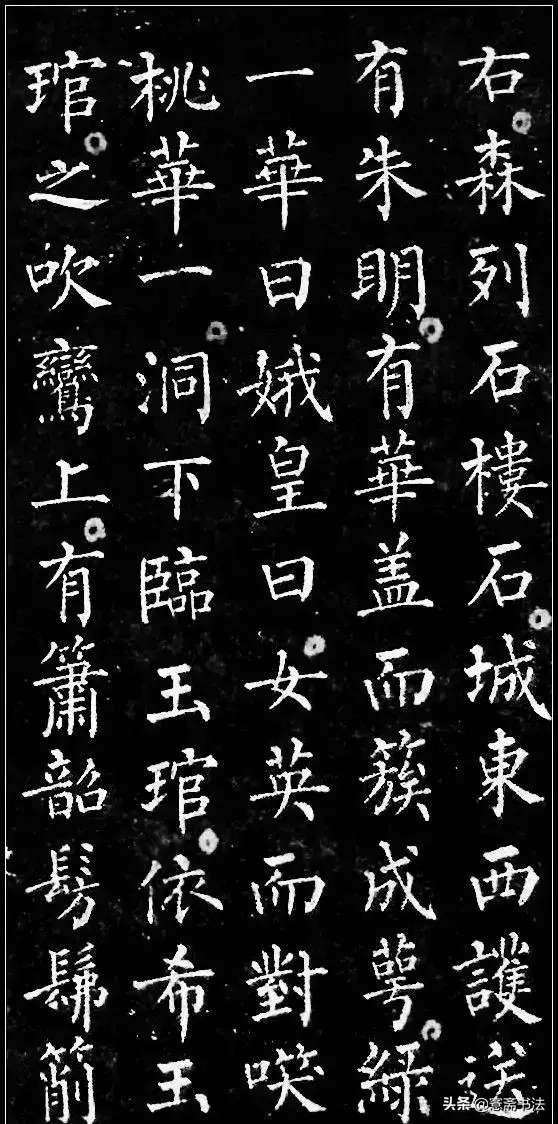 右森列石樓石城東西護送
有朱明有華盖而簇成萼綠
一華曰娥皇曰女英而對㗛
桃華一洞下臨玉琯依希玉
琯之吹鸞上有簫韶髣髴箾
头条 @斋书法